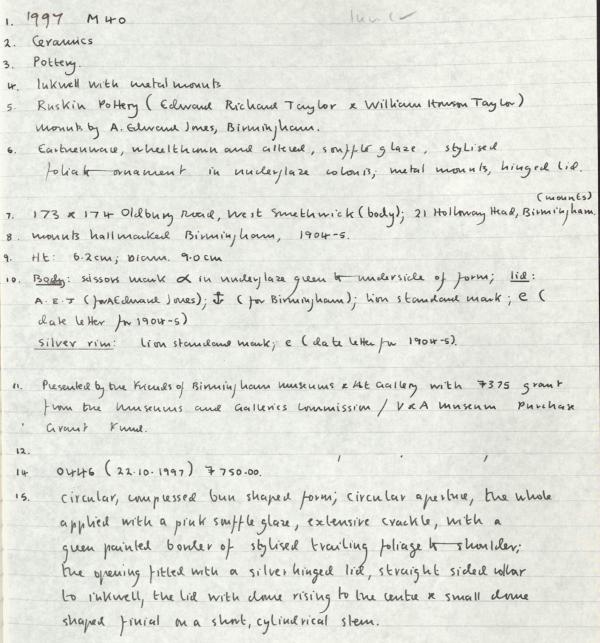 1. 1997 M40
2. Ceramics
3. Pottery.
4. Inkwell with metal mounts
5. Ruskin Pottery (Edward Richard Taylor & William Howson Taylor)
mounts by A. Edward Jones, Birmingham.
6. Earthenware, wheelthrown and altered, souffle glaze, stylised
foliate ornament in underglaze colours; metal mounts, hinged lid.
(mounts)
7. 173 & 174 Oldbury Road, West Smethwick (body); 21 Holloway Head, Birmingham.
8. mounts hallmarked Birmingham, 1904-5.
9. Ht: 6.2cm; Diam. 9.0cm
10. Body: scissors mark in underglaze green to underside of form; lid:
A.E.J (for A Edward Jones); ⚓ (for Birmingham); lion standard mark; e (
date letter for 1904-5)
Silver rim: lion standard mark; e (date letter for 1904-5).
11. Presented by the Friends of Birmingham Museums & Art Gallery with £375 grant
from the Museums and Galleries Commission / V&A Museum Purchase
Grant Fund.
12.
14. 0446 (22.10.1997) £750.00.
15. circular, compressed bun shaped form; circular aperture, the whole
applied with a pink souffle glaze, extensive crackle, with a
green painted border of stylised trailing foliage to shoulder;
the opening fitted with a silver hinged lid, straight sided collar
to inkwell, the lid with dome rising to the centre & small dome
shaped finial on a short, cylindrical stem.